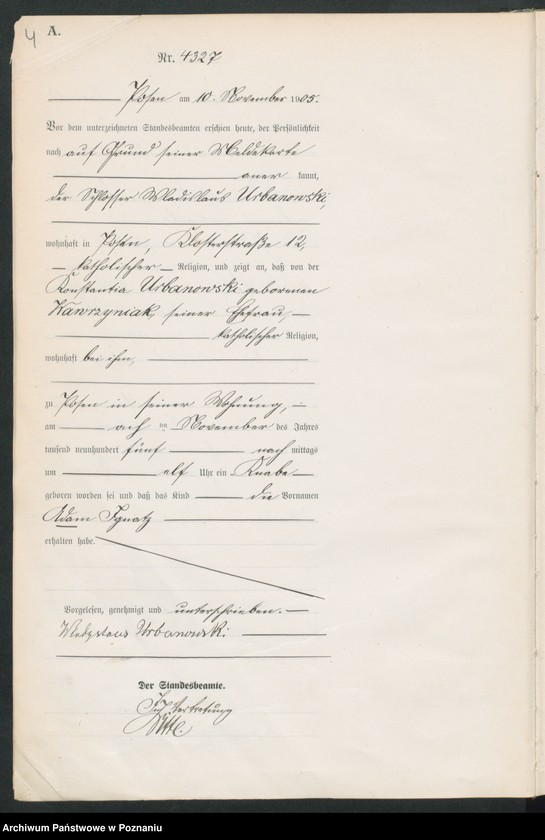 4 A.
Nr. 4327
Posen am 10. November 1905.
Vor dem unterzeichneten Standesbeamten erschien heute, der Persönlichkeit
nach auf Grund seiner Meldekarte
aner kannt,
der Schlosser Wladislaus Urbanowski,
wohnhaft in Posen, Klosterstraße 12,
katholischer Religion, und zeigt an, daß von der
Konstantia Urbanowski geborenen
Wawrzyniak, seiner Ehefrau,
katholischer Religion,
wohnhaft bei ihm,
zu Posen in seiner Wohnung,
am acht ten November des Jahres
tausend neunhundert fünf nach mittags
um elf Uhr ein Knabe
geboren worden sei und daß das Kind die Vornamen
Adam Ignatz
erhalten habe.
Vorgelesen, genehmigt und unterschrieben.
Urbanowski
Der Standesbeamte.
In Vertretung
Archiwum Państwowe w Poznaniu